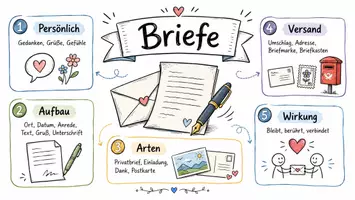 Briefe
1 Persönlich
Gedanken, Grüße, Gefühle
2 Aufbau
Ort, Datum, Anrede,
Text, Gruß, Unterschrift
3 Arten
Privatbrief, Einladung,
Dank, Postkarte
4 Versand
Umschlag, Adresse,
Briefmarke, Briefkasten
5 Wirkung
Bleibt, berührt, verbindet